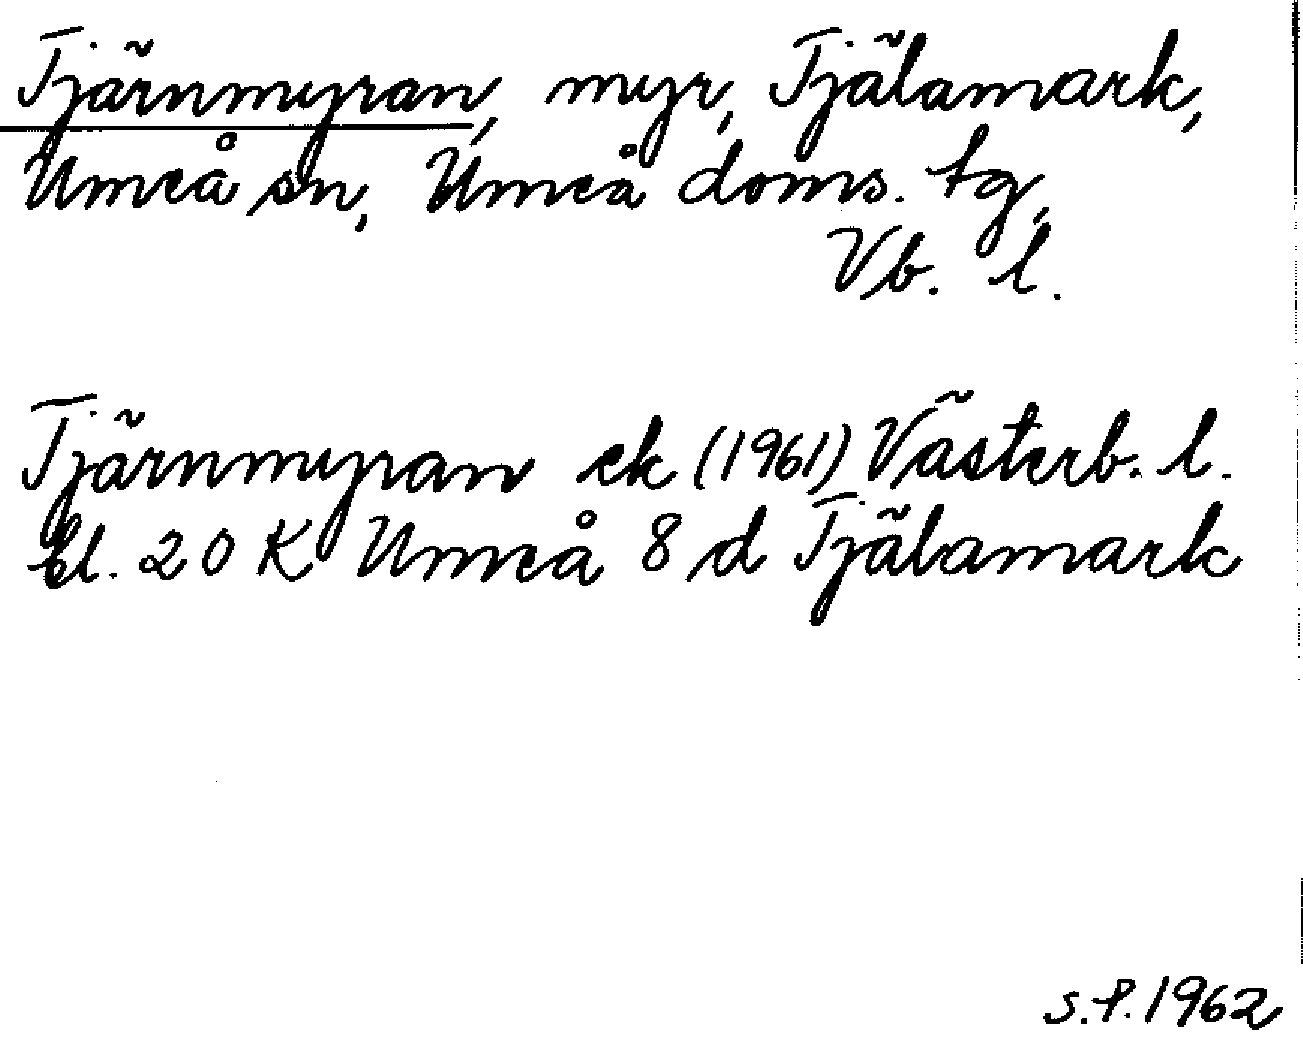 Tjärnmyran, myr, Tjälamark,
Umeå sn, Umeå doms. tg,
Vb. l.
Tjärnmyran ek (1961) Västerb. l.
bl. 20 K Umeå 8 d Tjälamark
S.P. 1962